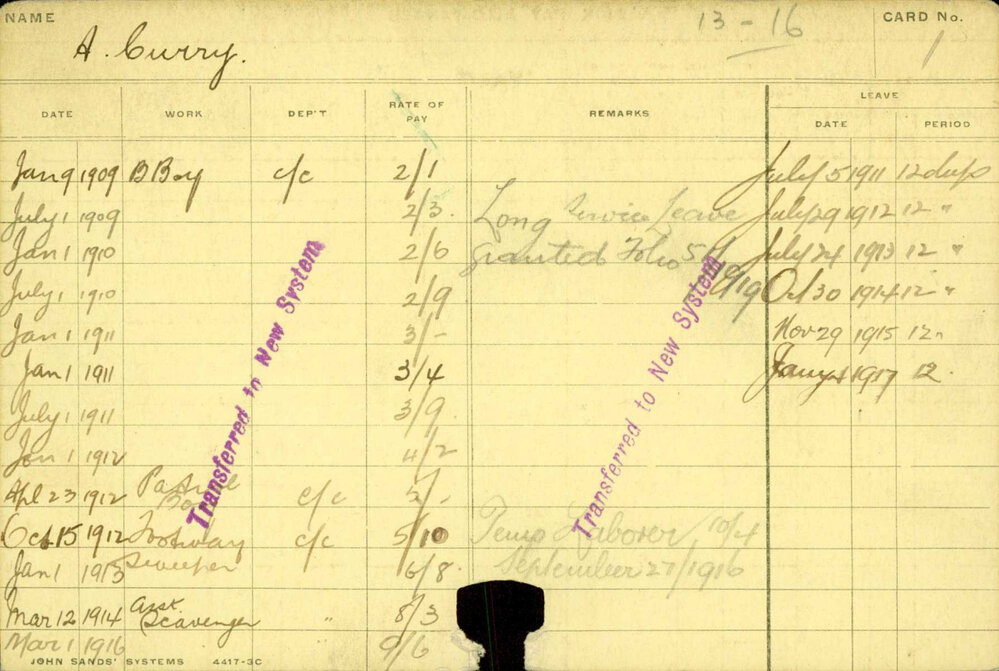 NAME
A. Curry.
13-16
CARD No.
1
DATE WORK DEP'T RATE OF PAY REMARKS LEAVE
DATE PERIOD
Jan 9 1909 B Boy c/c 2/1 July 5 1911 12 days
July 1 1909 2/3. Long Service Leave July 29 1912 12 "
Jan 1 1910 2/6 granted Folio July 24 1913 12 "
July 1 1910 2/9 1919 Oct 30 1914 12 "
Jan 1 1911 3/- Nov 29 1915 12 "
Jan 1 1911 3/4 1917 12.
July 1 1911 3/9.
Jan 1 1912 4/2
Apl 23 1912 c/c 5/-
Oct 15 1912 Footway c/c 5/10 Temp Laborer 10/4
Jan 1 1913 Sweeper 6/8. September 27/1916
Mar 12 1914 Asst Scavenger " 8/3
Mar 1 1916 9/6
Transferred to New System
Transferred to New System
JOHN SANDS' SYSTEMS 4417-3C